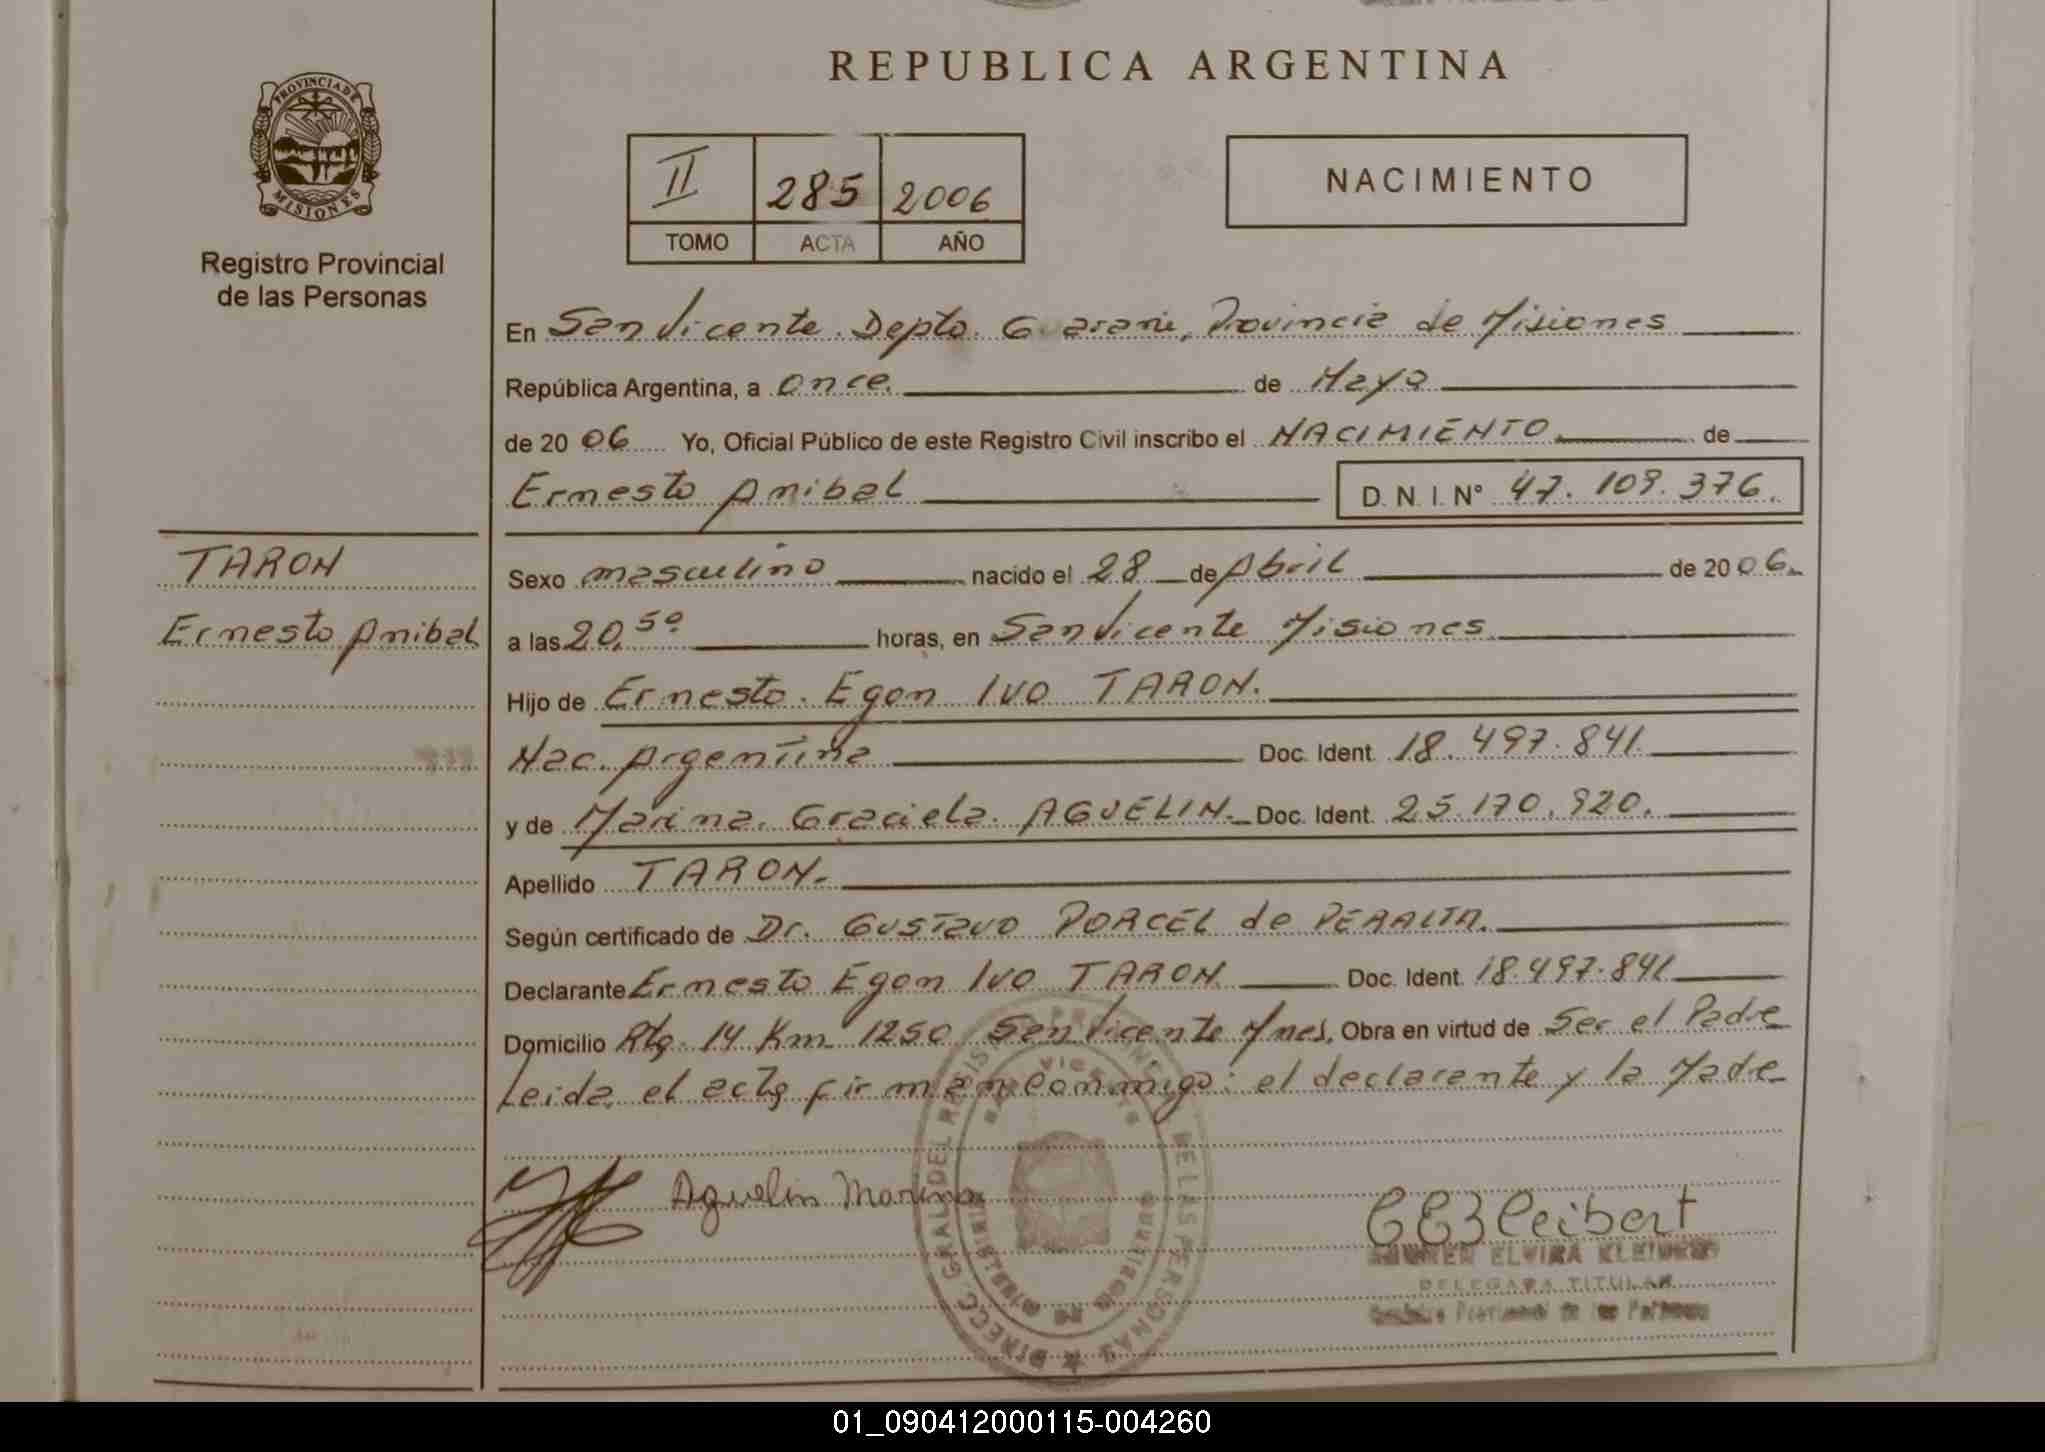 REPUBLICA ARGENTINA
PROVINCIA DE
MISIONES
Registro Provincial
de las Personas
II 285 2006
TOMO ACTA AÑO
NACIMIENTO
En San Vicente. Depto. Guarani, Provincia de Misiones
República Argentina, a once. de Mayo
de 20 06 Yo, Oficial Público de este Registro Civil inscribo el NACIMIENTO de
Ernesto Anibal D. N. I. N° 47.109.376.
TARON
Ernesto Anibal
Sexo masculino nacido el 28 de Abril de 20 06.
a las 20,50 horas, en San Vicente Misiones
Hijo de Ernesto. Egon Ivo TARON.
Nac. Argentina Doc. Ident. 18.497.841.
y de Marina. Graciela. AGUELIN. Doc. Ident. 25.170.920.
Apellido TARON.
Según certificado de Dr. Gustavo PORCEL de PERALTA.
Declarante Ernesto Egon Ivo TARON Doc. Ident. 18.497.841
Domicilio Rta. 14 Km 1250 San Vicente Mnes, Obra en virtud de Ser el Padre
Leida el acta firman conmigo: el declarante y la Madre
Aguelin Marina
ELVIRA
DELEGADA TITULAR
01_090412000115-004260